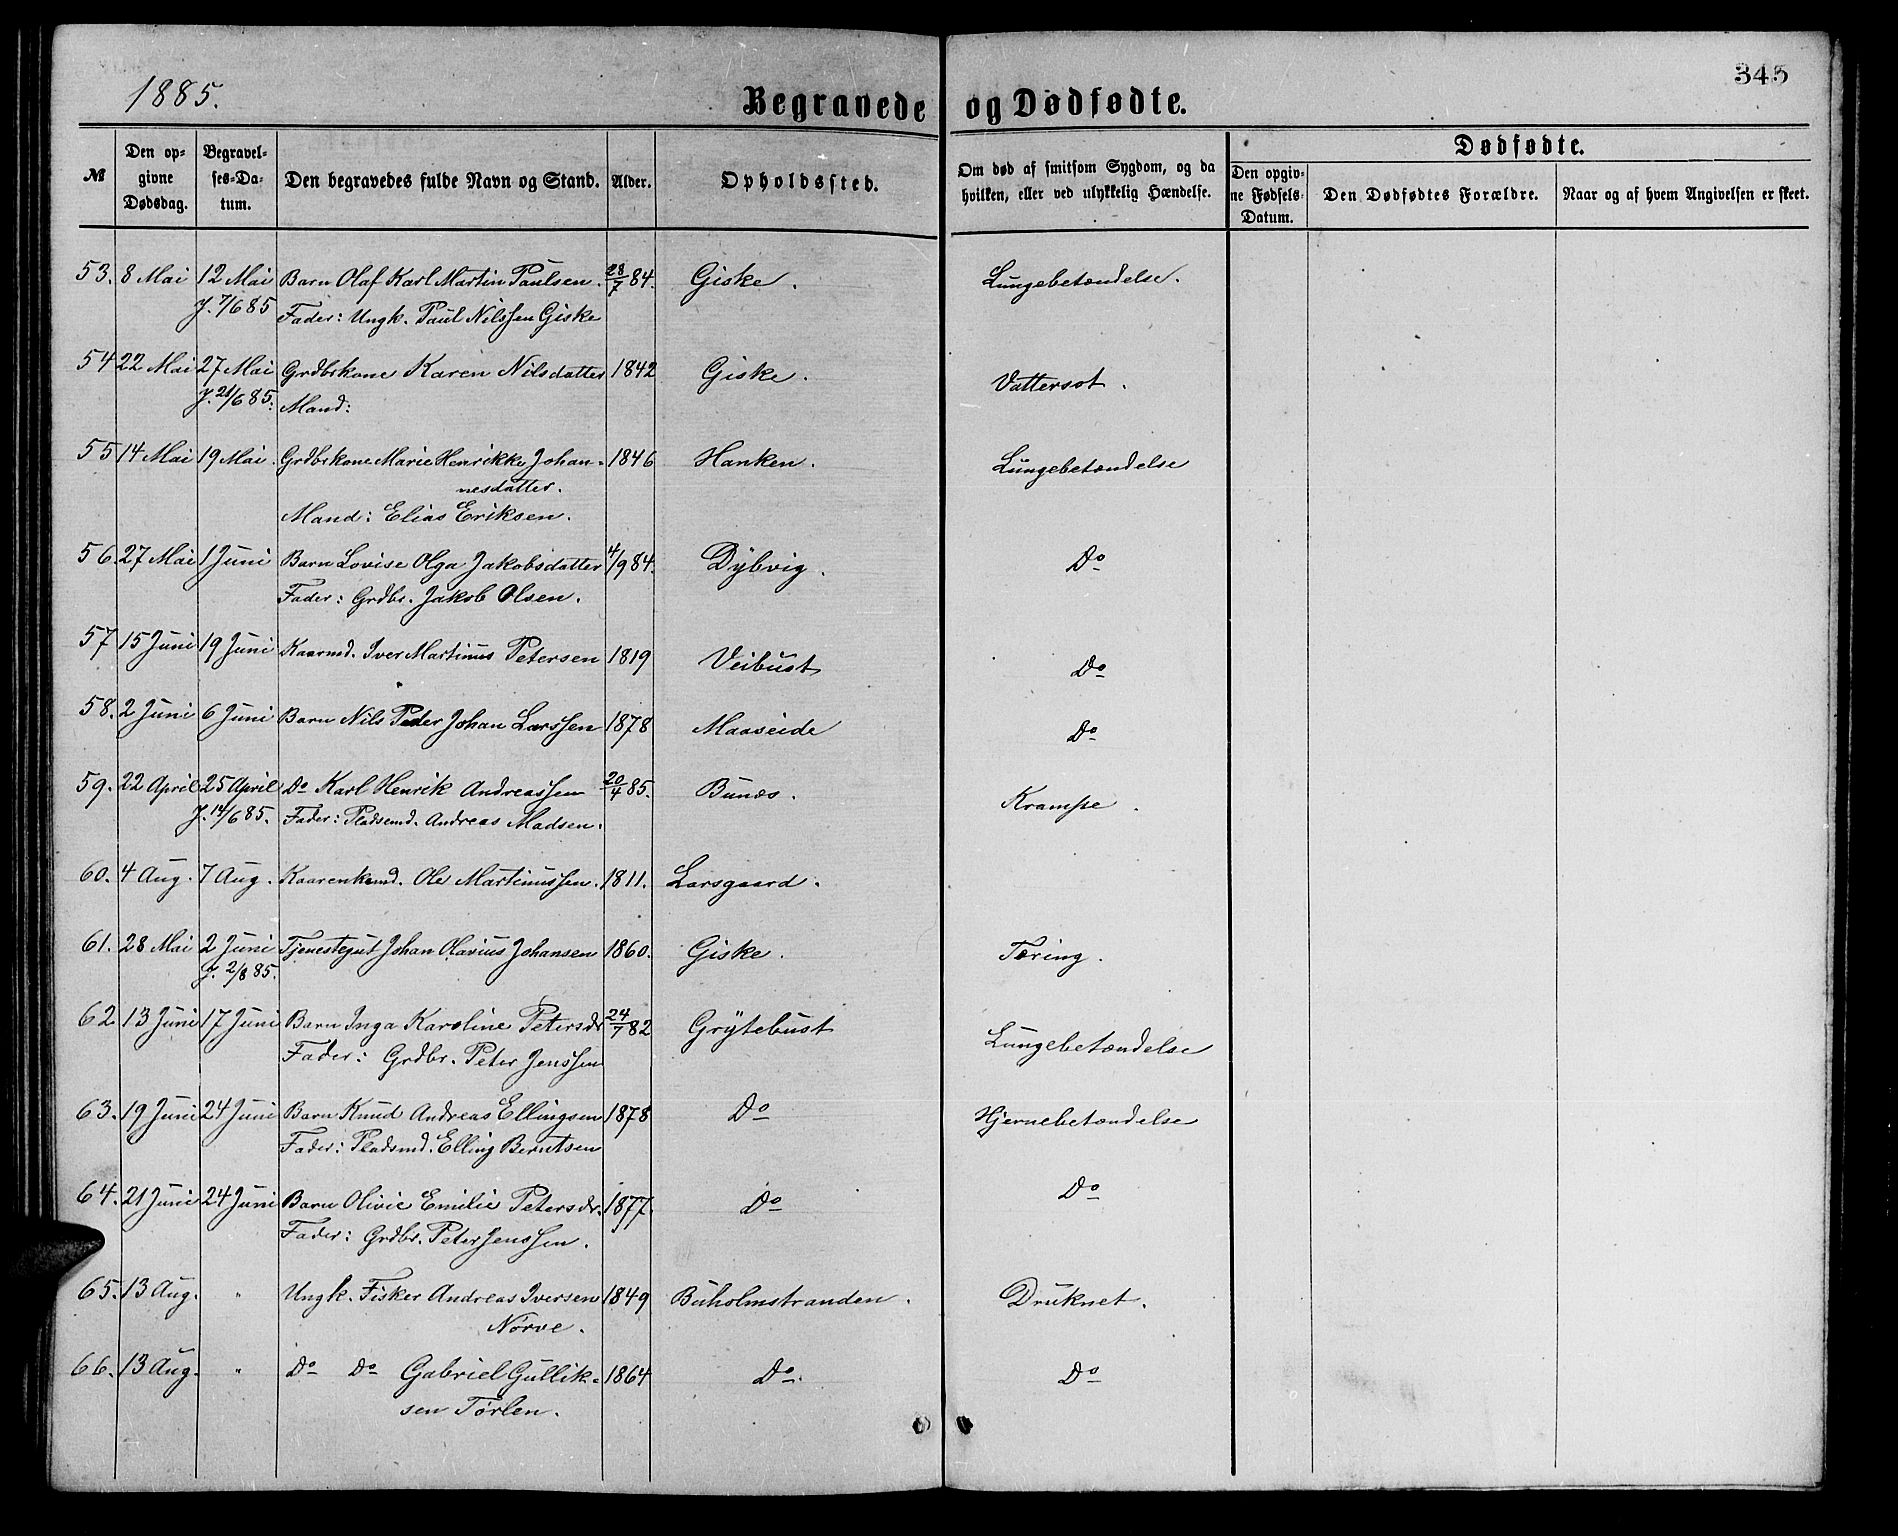 1885.
Begravede og Dødfødte.
345
№
Den opgivne Dødsdag.
Begravelses-Datum.
Den begravedes fulde Navn og Stand.
Alder.
Opholdssted.
Om død af smitsom Sygdom, og da hvilken, eller ved ulykkelig Hændelse.
Dødfødte.
Den opgivne Fødsels-Datum.
Den Dødfødtes Forældre.
Naar og af hvem Angivelsen er skeet.
53. 8 Mai 12 Mai Barn Olaf Karl Martin Paulsen. 28/7 84. Giske. Lungebetændelse.
J. 7/6 85 Fader: Ungk. Paul Nilssen Giske
54 22 Mai 27 Mai Grdbrkone Karen Nilsdatter 1842 Giske. Vattersot.
J. 21/6 85. Mand:
55 14 Mai 19 Mai. Grdbrkone Marie Henrikke Johan- 1846 Hanken. Lungebetændelse
nesdatter.
Mand: Elias Eriksen.
56. 27 Mai 1 Juni Barn Lovise Olga Jakobsdatter 4/9 84. Dybvig. Do
Fader: Grdbr. Jakob Olsen.
57 15 Juni 19 Juni Kaarmd. Iver Martinus Petersen 1819 Veibust Do
58. 2 Juni 6 Juni Barn Nils Peder Johan Larssen 1878 Maaseide Do
59. 22 April 25 April Do Karl Henrik Andreassen 20/4 85. Bunæs. Krampe.
J. 14/6 85. Fader: Pladsmd. Andreas Madsen.
60. 4 Aug. 7 Aug. Kaarenkemd. Ole Martinussen. 1811. Larsgaard.
61. 28 Mai 2 Juni Tjenestegut Johan Olavius Johansen 1860. Giske. Tæring.
J. 2/8 85.
62 13 Juni 17 Juni Barn Inga Karoline Petersdr 24/7 82 Grytebust Lungebetændelse
Fader: Grdbr. Peter Jenssen
63. 19 Juni 24 Juni Barn Knud Andreas Ellingsen 1878 Do Hjernebetændelse
Fader: Pladsmd. Elling Berntsen
64. 21 Juni 24 Juni Barn Olivie Emilie Petersdr. 1877. Do Do
Fader: Grdbr. Peter Jenssen.
65. 13 Aug. " Ungk. Fisker Andreas Iversen 1849 Buholmstranden. Druknet.
Nørve.
66. 13 Aug. " Do Do Gabriel Gullik- 1864 Do. Do
sen Tørlen.